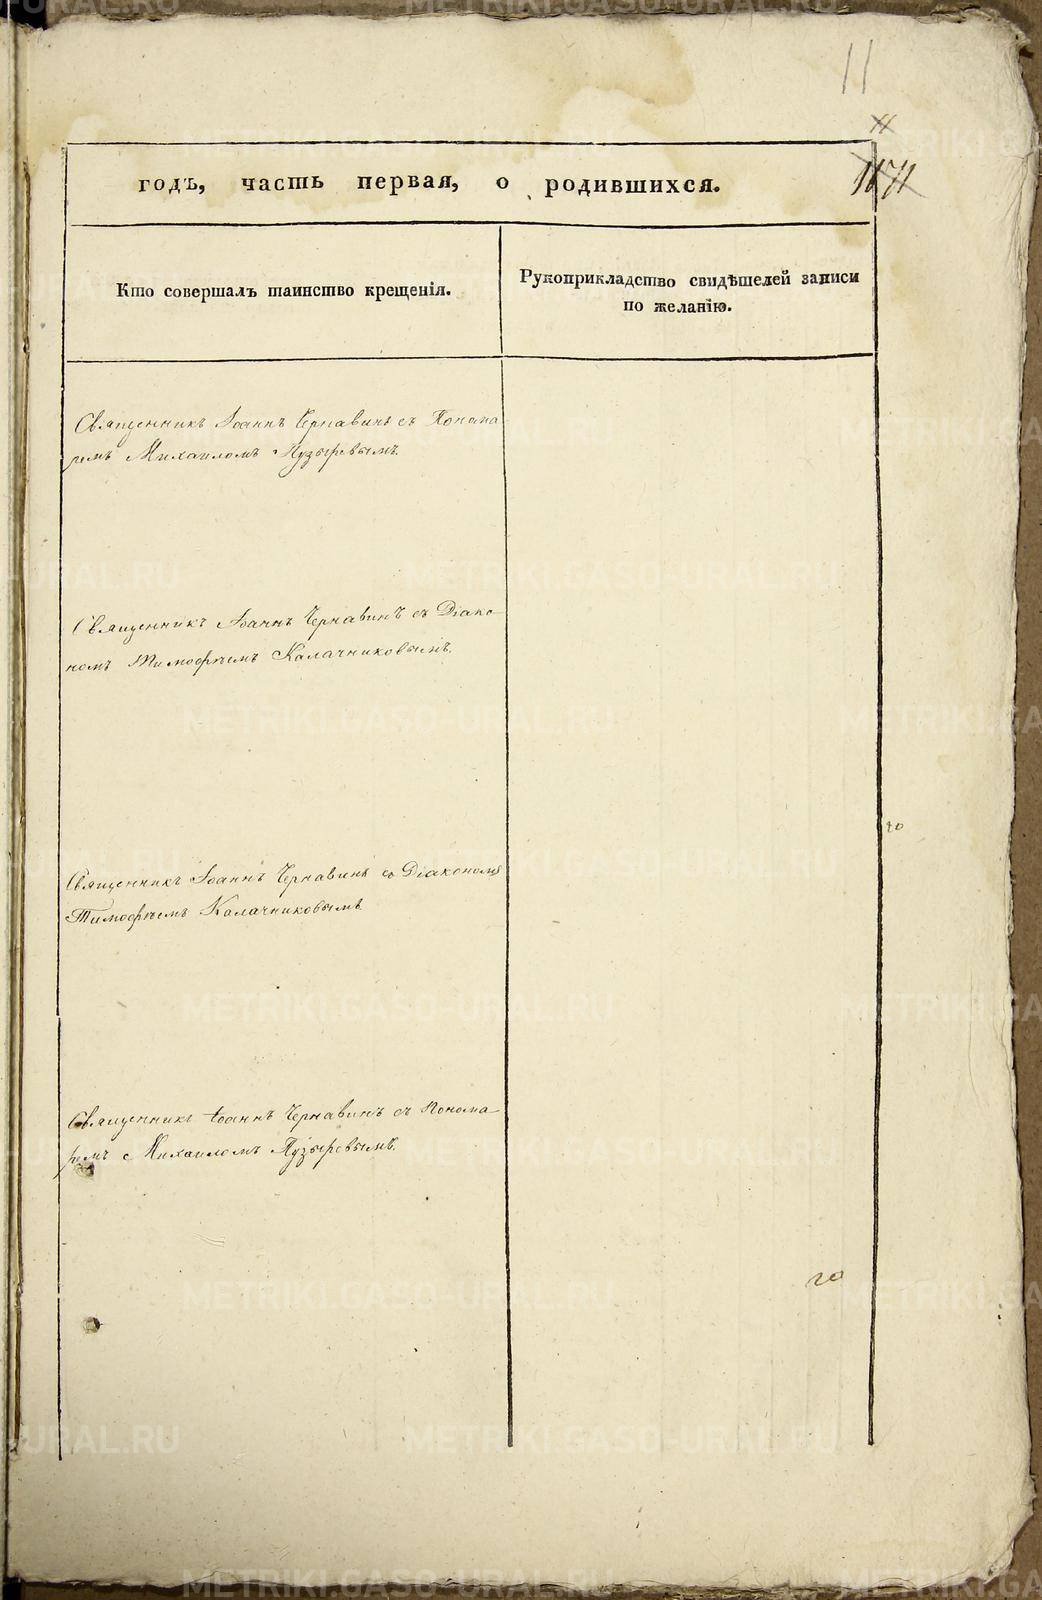 11
11
годъ, часть первая, о родившихся.
Кто совершалъ таинство крещенія.
Рукоприкладство свидѣтелей записи
по желанію.
Священникъ Іоаннъ Чернавинъ съ Понома
ремъ Михаиломъ Пузыревымъ.
Священникъ Іоаннъ Чернавинъ съ Діако-
номъ Тимофѣемъ Калачниковымъ.
Священникъ Іоаннъ Чернавинъ со Діакономъ
Тимофѣемъ Калачниковымъ
Священникъ Іоаннъ Чернавинъ съ Понома-
ремъ Михаиломъ Пузыревымъ.
METRIKI.GASO-URAL.RU